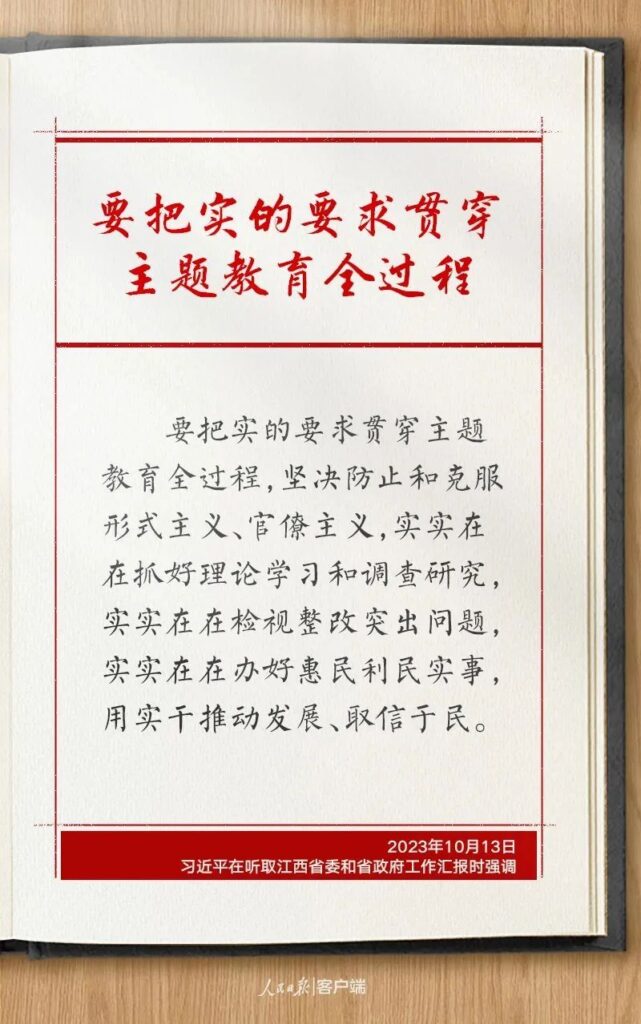 要把实的要求贯穿
主题教育全过程
要把实的要求贯穿主题
教育全过程,坚决防止和克服
形式主义、官僚主义,实实在
在抓好理论学习和调查研究,
实实在在检视整改突出问题,
实实在在办好惠民利民实事,
用实干推动发展、取信于民。
2023年10月13日
习近平在听取江西省委和省政府工作汇报时强调
人民日报|客户端